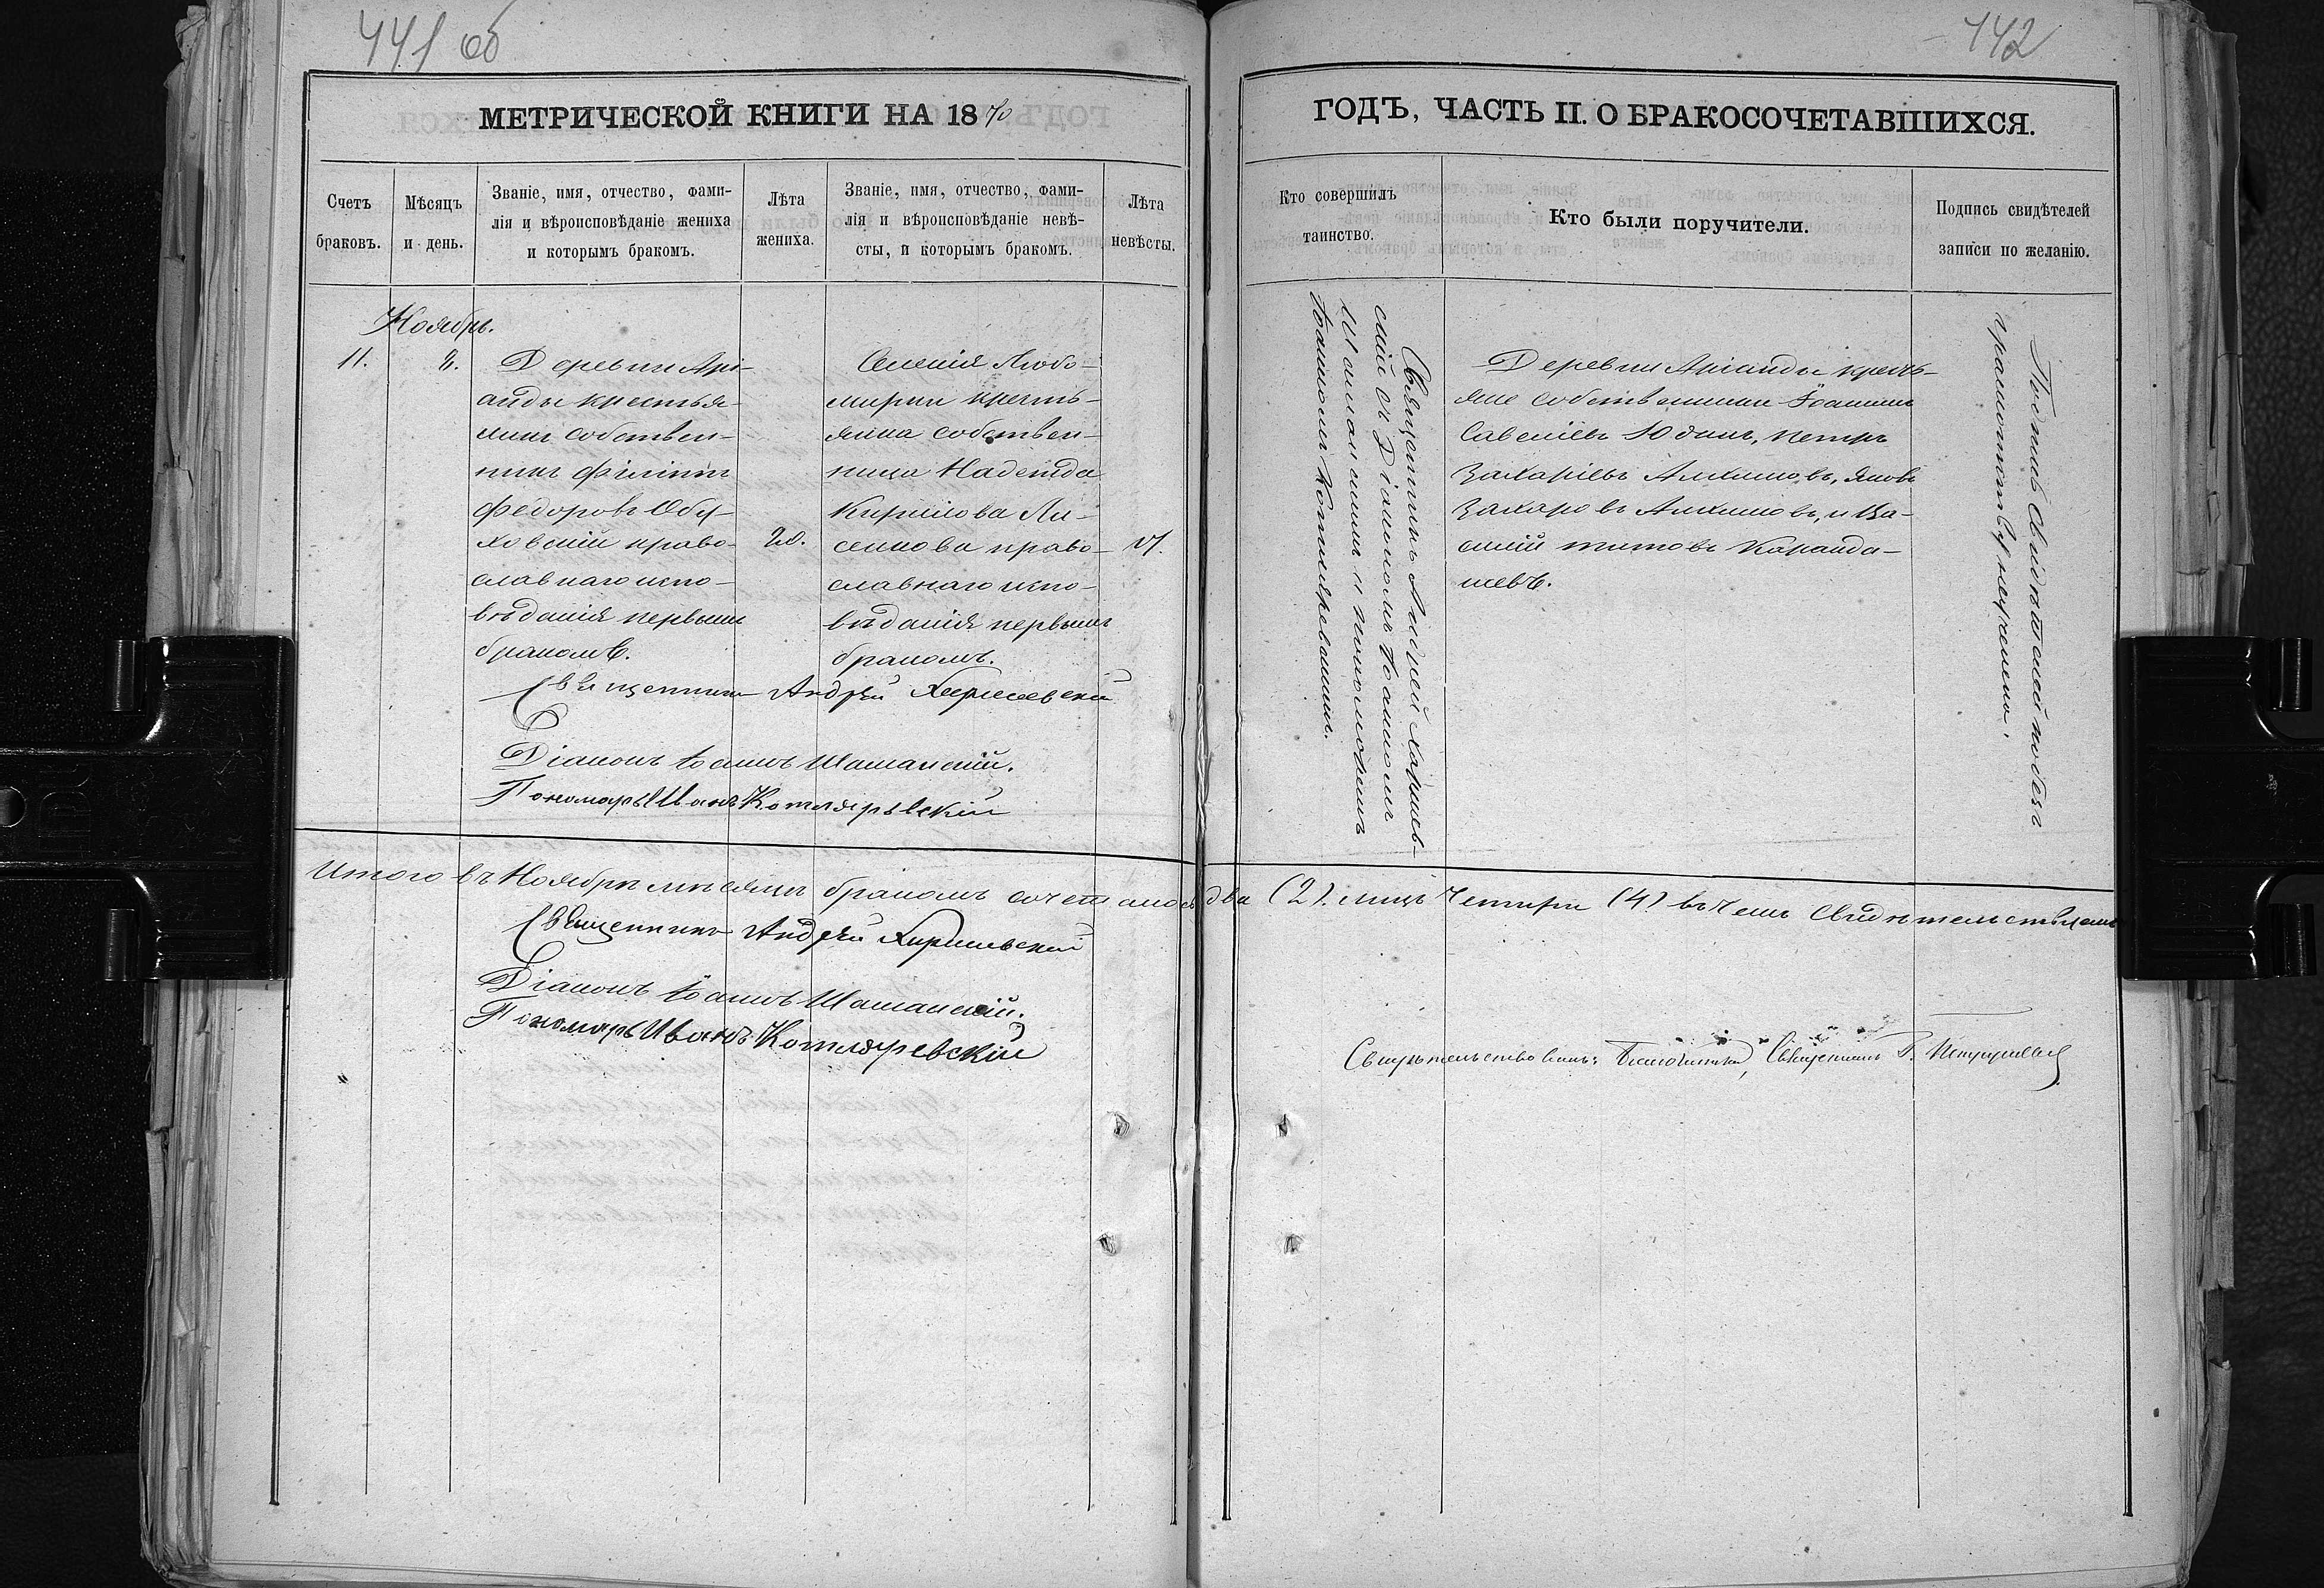 441 об
442
МЕТРИЧЕСКОЙ КНИГИ НА 1870
ГОДЪ, ЧАСТЬ II. О БРАКОСОЧЕТАВШИХСЯ.
Счетъ
браковъ.
Мѣсяцъ
и день.
Званіе, имя, отчество, фами-
лія и вѣроисповѣданіе жениха
и которымъ бракомъ.
Лѣта
жениха.
Званіе, имя, отчество, фами-
лія и вѣроисповѣданіе невѣ-
сты, и которымъ бракомъ.
Лѣта
невѣсты.
Кто совершилъ
таинство.
Кто были поручители.
Подпись свидѣтелей
записи по желанію.
Ноябрь.
11.
8.
Деревни Арі-
анды крестья-
нинъ собствен-
никъ Філиппъ
Федоровъ Обу-
ховскій право-
славнаго испо-
вѣданія первымъ
бракомъ.
20.
Селенія Любо-
мирки кресть-
янка собствен-
ница Надежда
Кирилова
право-
славнаго испо-
вѣданія первымъ
бракомъ.
17.
Священникъ Андрей
скій съ Діакономъ Іоанномъ
Шашанскимъ и пономоремъ
Іоанномъ Котляревскимъ.
Деревни Аріанды кресть-
яне собственники Іоаннъ
Савеліевъ Юдинъ, Петръ
Захаріевъ Яковъ
Захаровъ и Ва-
силій Титовъ Каранда-
шевъ.
Подпись свидѣтелей по безъ
грамотству неучинено.
Священникъ Андрей
Діаконъ Іоаннъ Шашанскій.
Пономарь Иванъ Котляревскій
Итого въ Ноябрѣ мѣсяцѣ бракомъ сочеталось два (2) лицъ четыри (4) въ чемъ свидѣтельствуемъ
Священникъ Андрей
Діаконъ Іоаннъ Шашанскій.
Пономарь Иванъ Котляревскій
Свидѣтельствовалъ: Благочинный, Священникъ